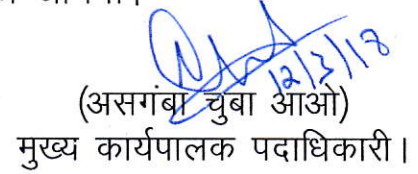 12/3/18
(असगंबा चुबा आओ)
मुख्य कार्यपालक पदाधिकारी।